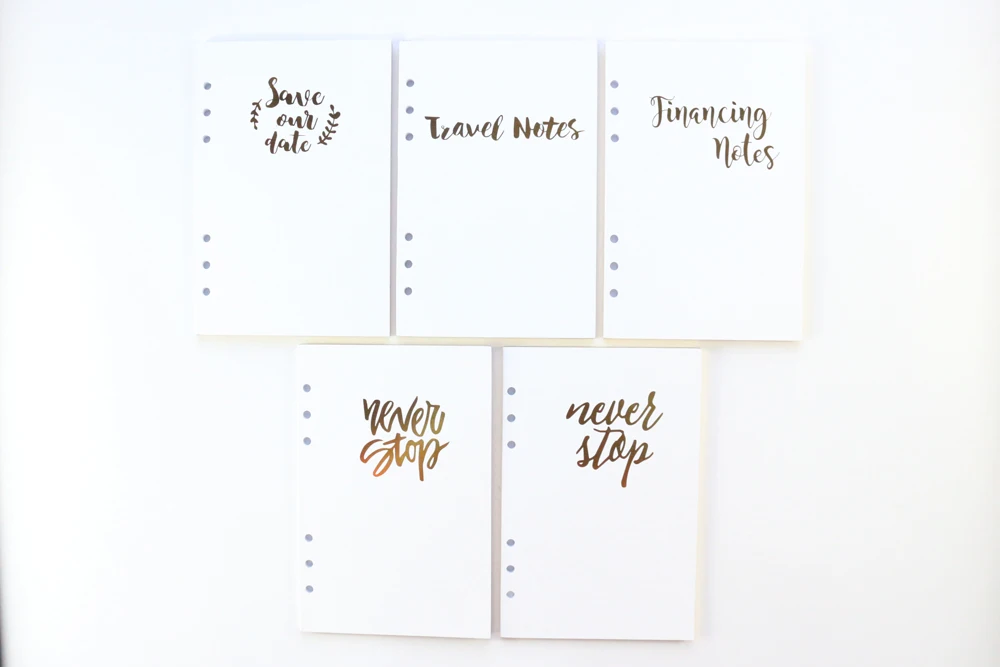 Save
our
date
Travel Notes
Financing
Notes
never
stop
never
stop